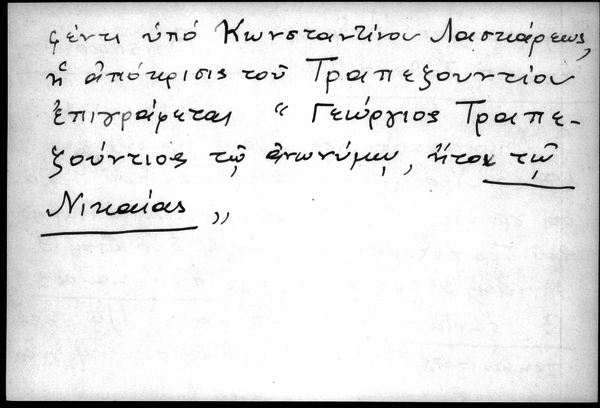 φέντι ὑπὸ Κωνσταντίνου Λασκάρεως,
ἡ ἀπόκρισις τοῦ Τραπεζουντίου
ἐπιγράφεται “ Γεώργιος Τραπε-
ζούντιος τῷ ἀνωνύμῳ, ἤτοι τῷ
Νικαίας „